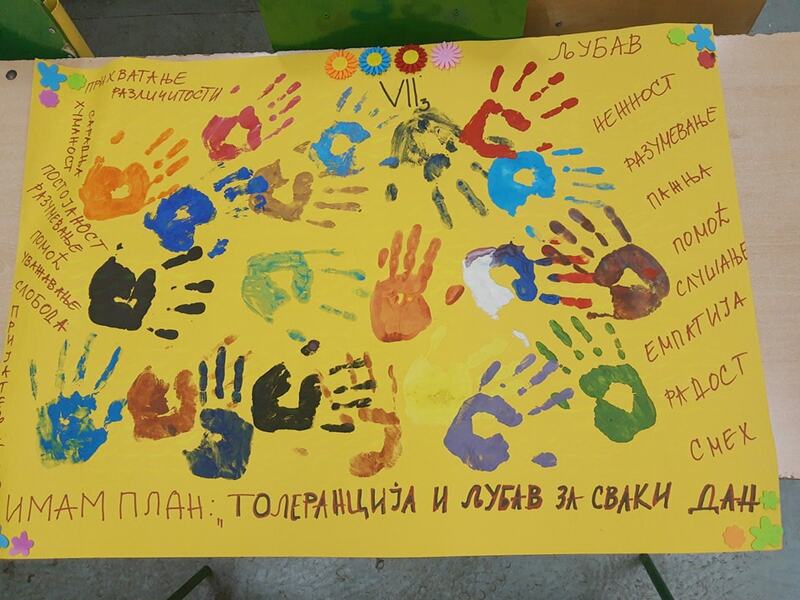 ПРИХВАТАЊЕ
РАЗЛИЧИТОСТИ
САРАДЊА
ХУМАНОСТ
ПОСТОЈАНОСТ
РАЗУМЕВАЊЕ
ПОМОЋ
УВАЖАВАЊЕ
СЛОБОДА
VII3
ЉУБАВ
НЕЖНОСТ
РАЗУМЕВАЊЕ
ПАЖЊА
ПОМОЋ
СЛУШАЊЕ
ЕМПАТИЈА
РАДОСТ
СМЕХ
ИМАМ ПЛАН: „ТОЛЕРАНЦИЈА И ЉУБАВ ЗА СВАКИ ДАН